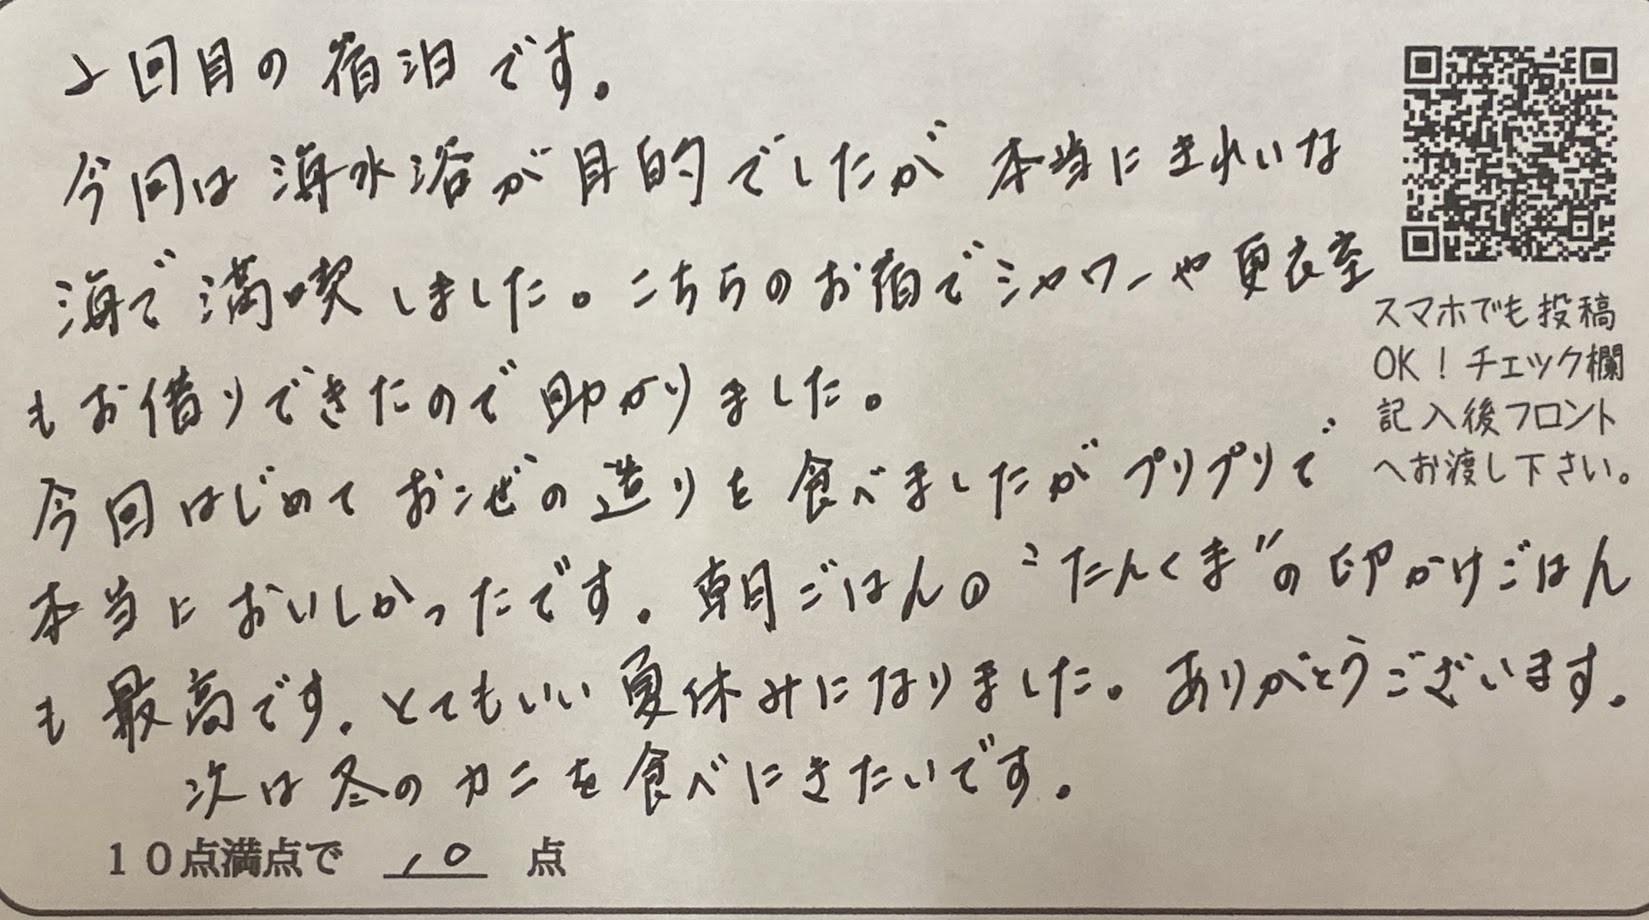 2回目の宿泊です。
今回は海水浴が目的でしたが本当にきれいな
海で満喫しました。こちらのお宿でシャワーや更衣室
もお借りできたので助かりました。
今回はじめておこぜの造りを食べましたがプリプリで
本当においしかったです。朝ごはんの"たんくま"の卵かけごはん
も最高です。とてもいい夏休みになりました。ありがとうございます。
次は冬のカニを食べにきたいです。
10点満点で 10 点
スマホでも投稿
OK！チェック欄
記入後フロント
へお渡し下さい。